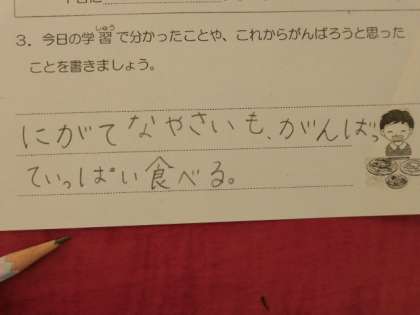 3. 今日の学習で分かったことや、これからがんばろうと思った
しゅう
ことを書きましょう。
にがてなやさいも、がんばっ
ていっぱい食べる。